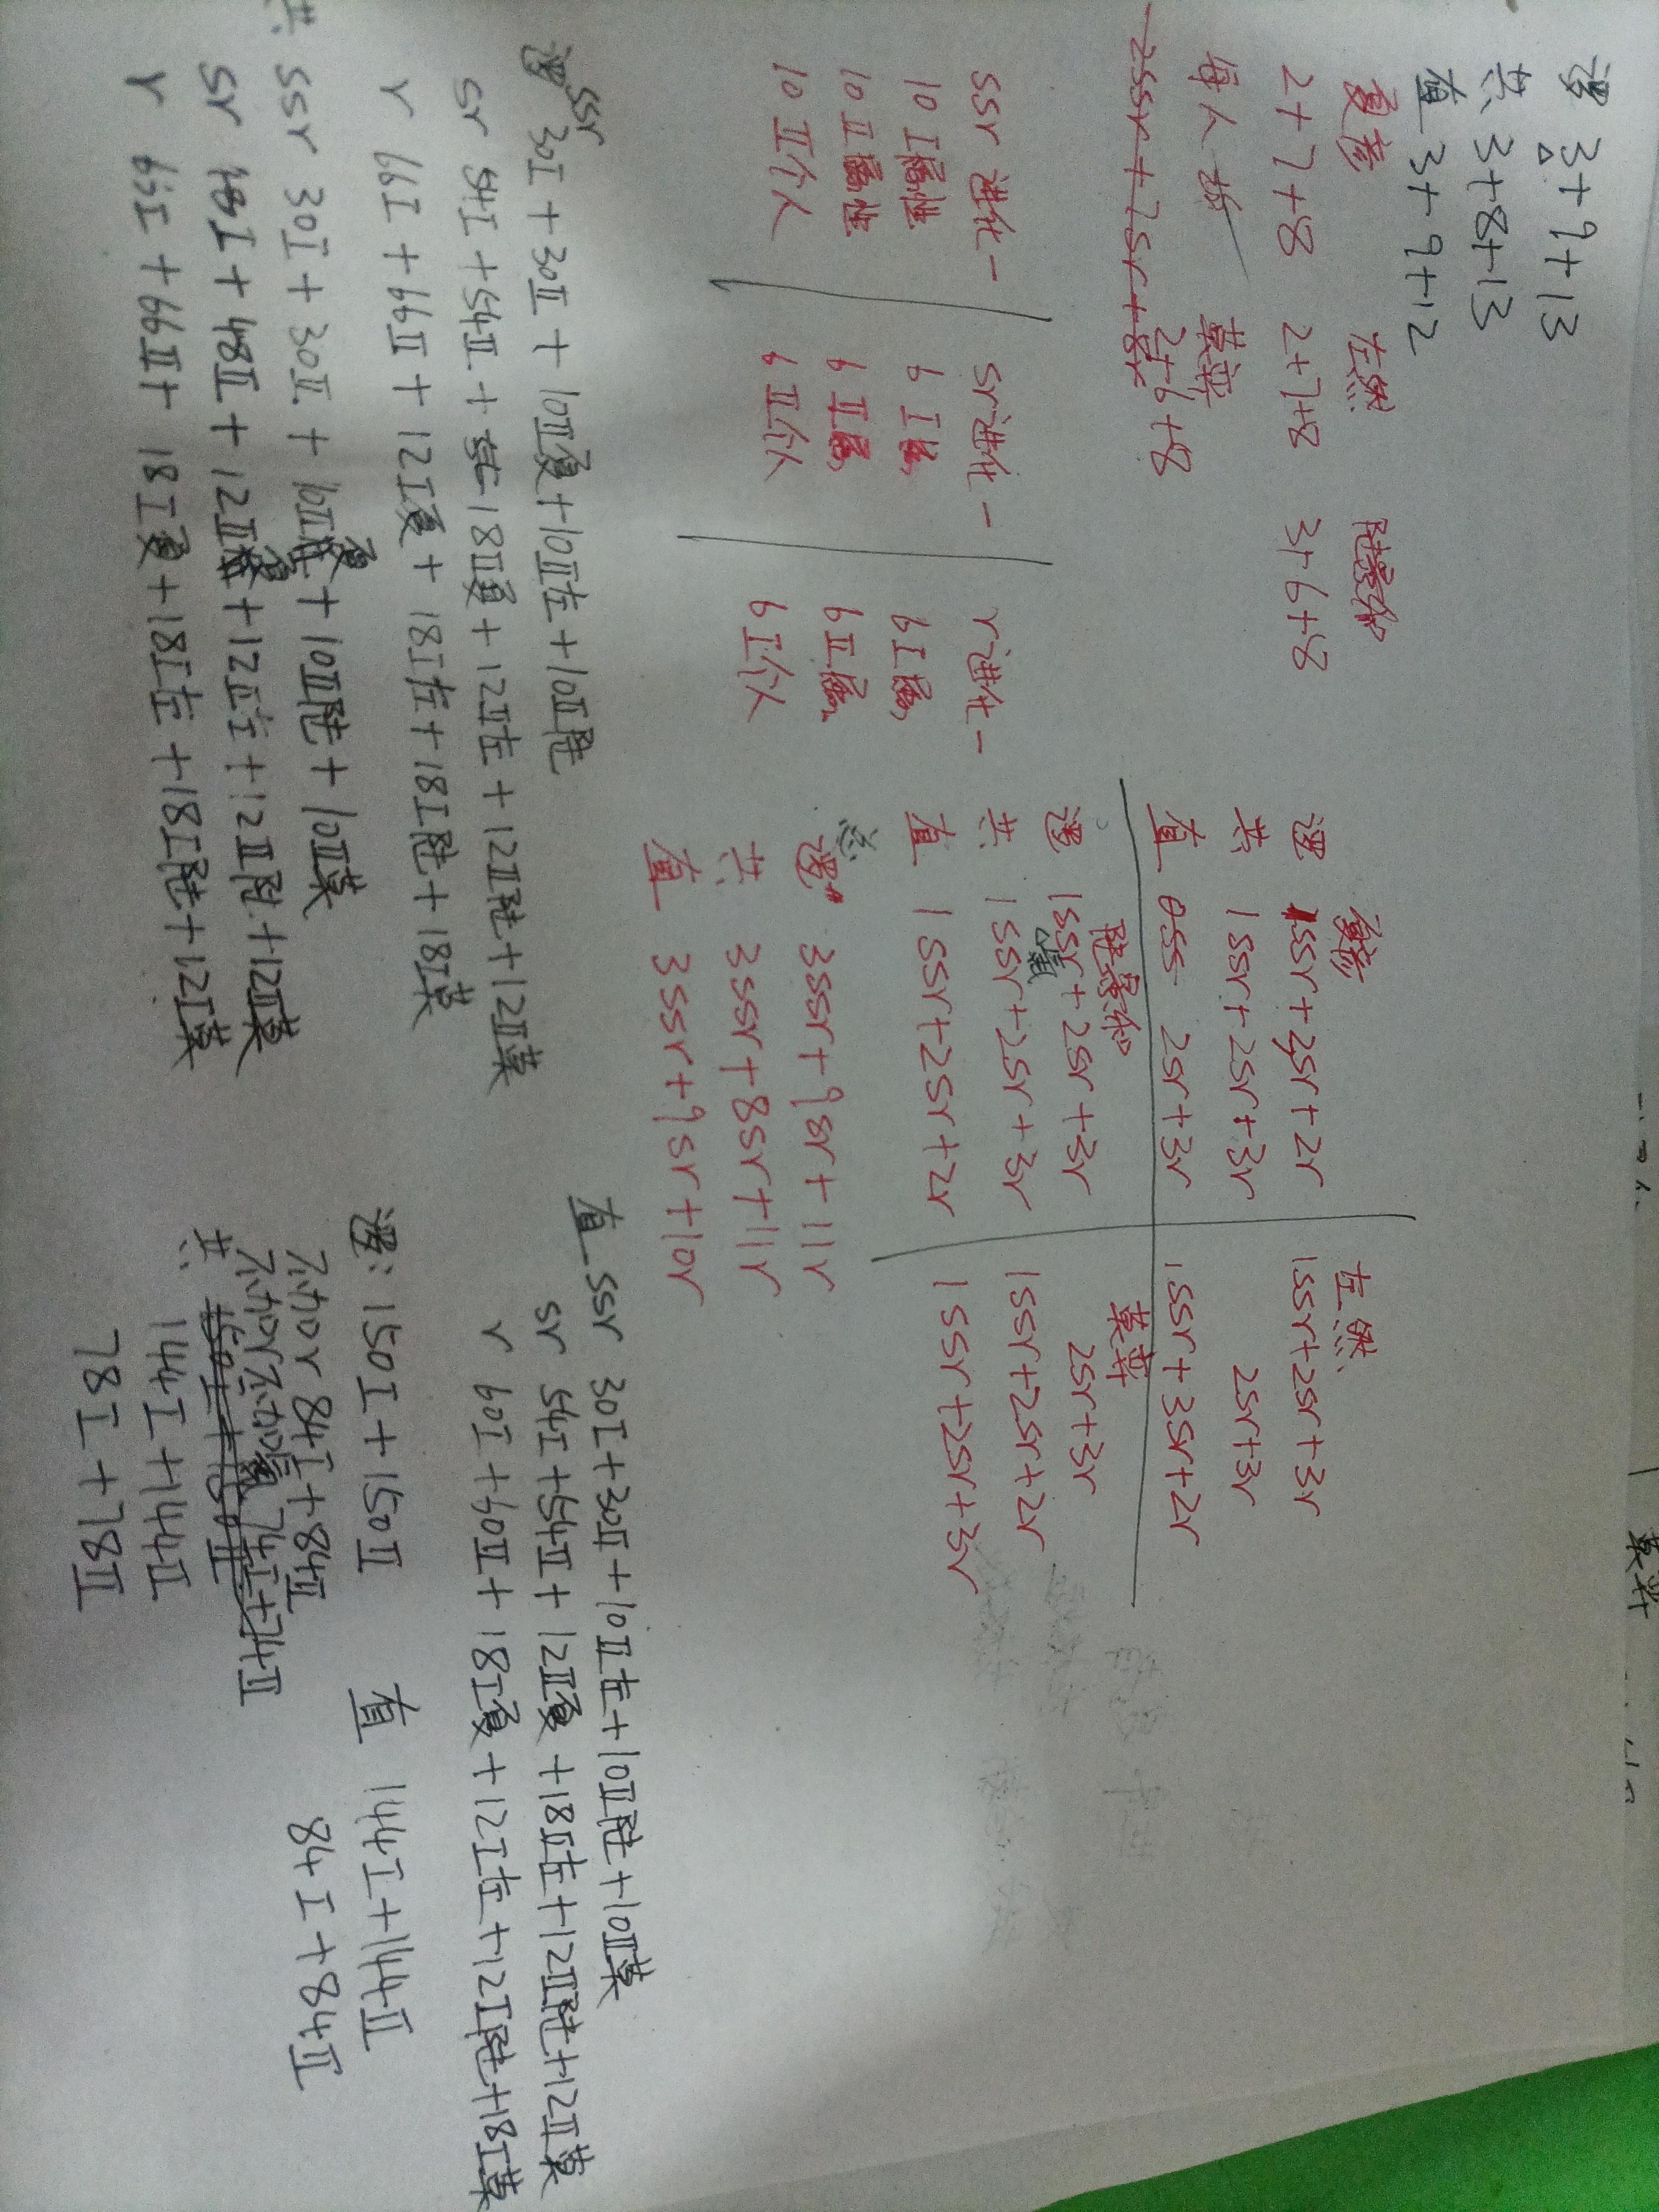 逻 3+9+13
共 3+8+13
直 3+9+12
夏彦 左然 陆景和
2+7+8 2+7+8 3+6+8
每人拆 莫弈
2ssr+7sr+8r 2+6+8
ssr进化一 sr进化一 r进化一
10 I属性 6 I属 6 I属
10 II属性 6 II属 6 II属
10 II个人 6 II个人 6 I个人
夏彦 左然
逻 1ssr+3sr+2r 1ssr+2sr+3r
共 1ssr+2sr+3r 2sr+3r
直 2sr+3r 1ssr+3sr+2r
陆景和 莫弈
逻 1ssr+2sr+3r 2sr+3r
共 1ssr+2sr+3r 1ssr+2sr+2r
直 1ssr+2sr+2r 1ssr+2sr+3r
逻 3ssr+9sr+11r
共 3ssr+8sr+11r
直 3ssr+9sr+10r
逻 ssr 30I+30II+10II夏+10II左+10II陆
sr 54I+54II+18II夏+12II左+12II陆+12II莫
r 66I+66II+12I夏+18I左+18I陆+18I莫
共 ssr 30I+30II+10II夏+10II陆+10II莫
sr 48I+48II+12II夏+12II左+12II陆+12II莫
r 66I+66II+18I夏+18I左+18I陆+12I莫
直 ssr 30I+30II+10II左+10II陆+10II莫
sr 54I+54II+12II夏+18II左+12II陆+12II莫
r 60I+60II+18I夏+12I左+12I陆+18I莫
逻: 150I+150II
不加r 84I+84II
不加r不加 74I+74II
共: 144I+144II
78I+78II
直 144I+144II
84I+84II
莫弈